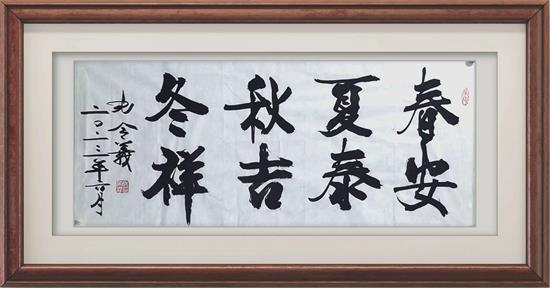 春安
夏泰
秋吉
冬祥
令義
二〇二三年 月